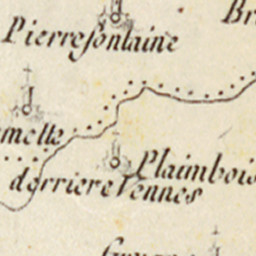 Pierrefontaine
Br
melle
Plaimbois
derriere Vennes